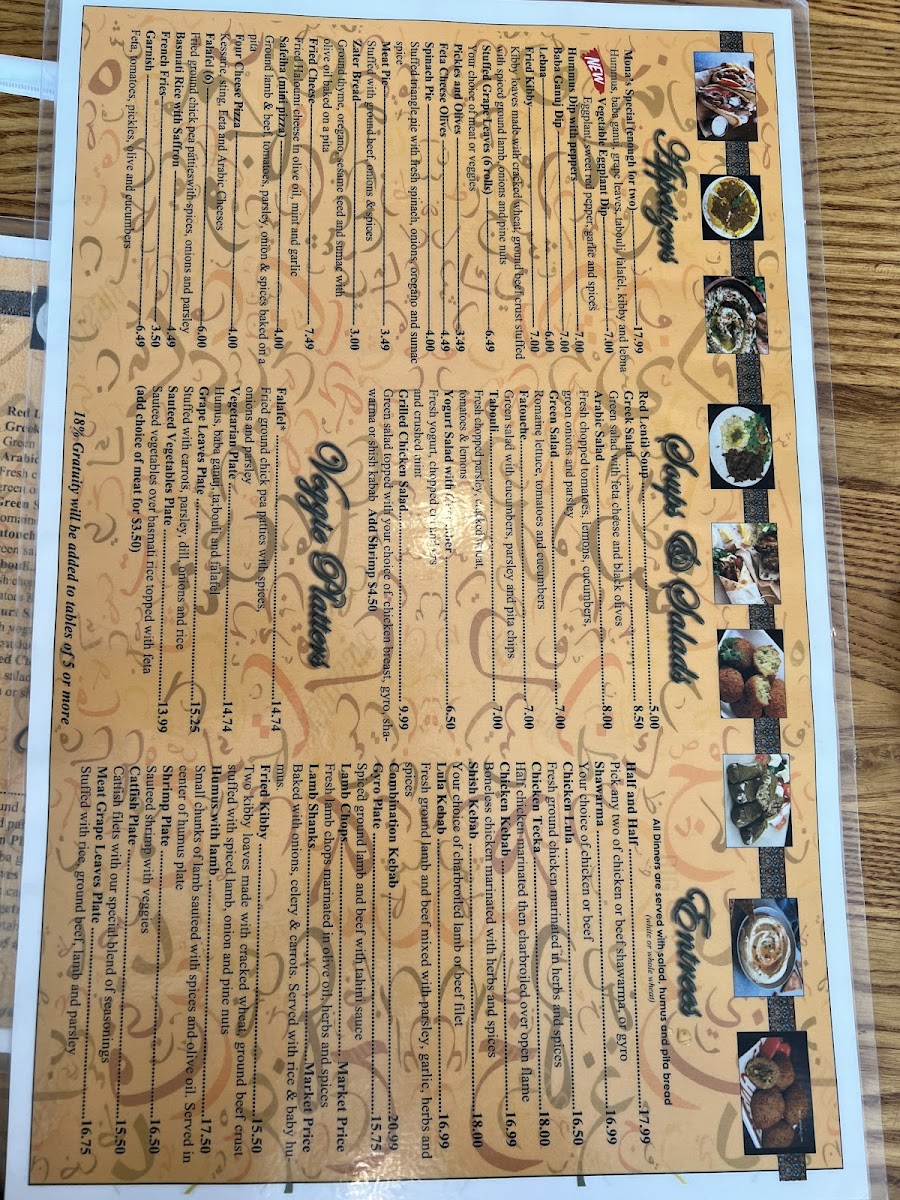 Appetizers
Mona's Special (enough for two) 17.99
Hummus, baba ganuj, grape leaves, tabouli, falafel, kibby and lebna
NEW Vegetable Eggplant Dip 7.00
Eggplant, sweet red pepper, garlic and spices
Hummus Dip with peppers 7.00
Baba Ganuj Dip 7.00
Lebna 6.00
Fried Kibby 7.00
Kibby loaves made with cracked wheat, ground beef crust stuffed
with spiced ground lamb, onions and pine nuts
Stuffed Grape Leaves (6 rolls) 6.49
Your choice of meat or veggies
Pickles and Olives 3.49
Feta Cheese Olives 4.49
Spinach Pie 4.00
Stuffed triangle pie with fresh spinach, onions, oregano and sumac
spice
Meat Pie 3.49
Stuffed with ground beef, onions & spices
Zater Bread 3.00
Ground thyme, oregano, sesame seed and sumac with
olive oil baked on a pita
Fried Cheese 7.49
Fried Haloumi cheese in olive oil, mint and garlic
Safeiha (mini pizza) 4.00
Ground lamb & beef, tomatoes, parsley, onion & spices baked on a
pita
Four Cheese Pizza 4.00
Kesserie, string, Feta and Arabic Cheeses
Falafel (6) 6.00
Fried ground chick pea patties with spices, onions and parsley
Basmati Rice with Saffron 4.49
French Fries 3.50
Garnish 6.49
Feta, tomatoes, pickles, olive and cucumbers
Soups & Salads
Red Lentil Soup 5.00
Greek Salad 8.50
Green salad with feta cheese and black olives
Arabic Salad 8.00
Fresh chopped tomatoes, lemons, cucumbers,
green onions and parsley
Green Salad 7.00
Romaine lettuce, tomatoes and cucumbers
Fatouche 7.00
Green salad with cucumbers, parsley and pita chips
Tabouli 7.00
Fresh chopped parsley, cracked wheat,
tomatoes & lemons
Yogurt Salad with 6.50
Fresh yogurt, chopped
and crushed mint
Grilled Chicken Salad 9.99
Green salad topped with your choice of: chicken breast, gyro, sha-
warma or shish kabab Add Shrimp $4.50
Veggie Platters
Falafel* 14.74
Fried ground chick pea patties with spices,
onions and parsley
Vegetarian Plate 14.74
Humus, baba ganuj, tabouli and falafel
Grape Leaves Plate 15.25
Stuffed with carrots, parsley, dill, onions and rice
Sauteed Vegetables Plate 13.99
Sauteed vegetables over basmati rice topped with feta
(add choice of meat for $3.50)
18% Gratuity will be added to tables of 5 or more
Entrees
All Dinners are served with salad, humus and pita bread
(white or whole wheat)
Half and Half 17.99
Pick any two of chicken or beef shawarma, or gyro
Shawarma 16.99
Your choice of chicken or beef
Chicken Lula 16.50
Fresh ground chicken marinated in herbs and spices
Chicken Tecka 18.00
Half chicken marinated then charbroiled over open flame
Chicken Kebab 16.99
Boneless chicken marinated with herbs and spices
Shish Kebab 18.00
Your choice of charbroiled lamb or beef filet
Lula Kebab 16.99
Fresh ground lamb and beef mixed with parsley, garlic, herbs and
spices
Combination Kebab 20.99
Gyro Plate 15.75
Spiced ground lamb and beef with tahini sauce
Lamb Chops Market Price
Fresh lamb chops marinated in olive oil, herbs and spices
Lamb Shanks Market Price
Baked with onions, celery & carrots. Served with rice & baby hu-
mus.
Fried Kibby 15.50
Two kibby loaves made with cracked wheat, ground beef crust
stuffed with spiced lamb, onion and pine nuts
Humus with lamb 17.50
Small chunks of lamb sauteed with spices and olive oil. Served in
center of humus plate
Shrimp Plate 16.50
Sauteed shrimp with veggies
Catfish Plate 15.50
Catfish filets with our special blend of seasonings
Meat Grape Leaves Plate 16.75
Stuffed with rice, ground beef, lamb and parsley